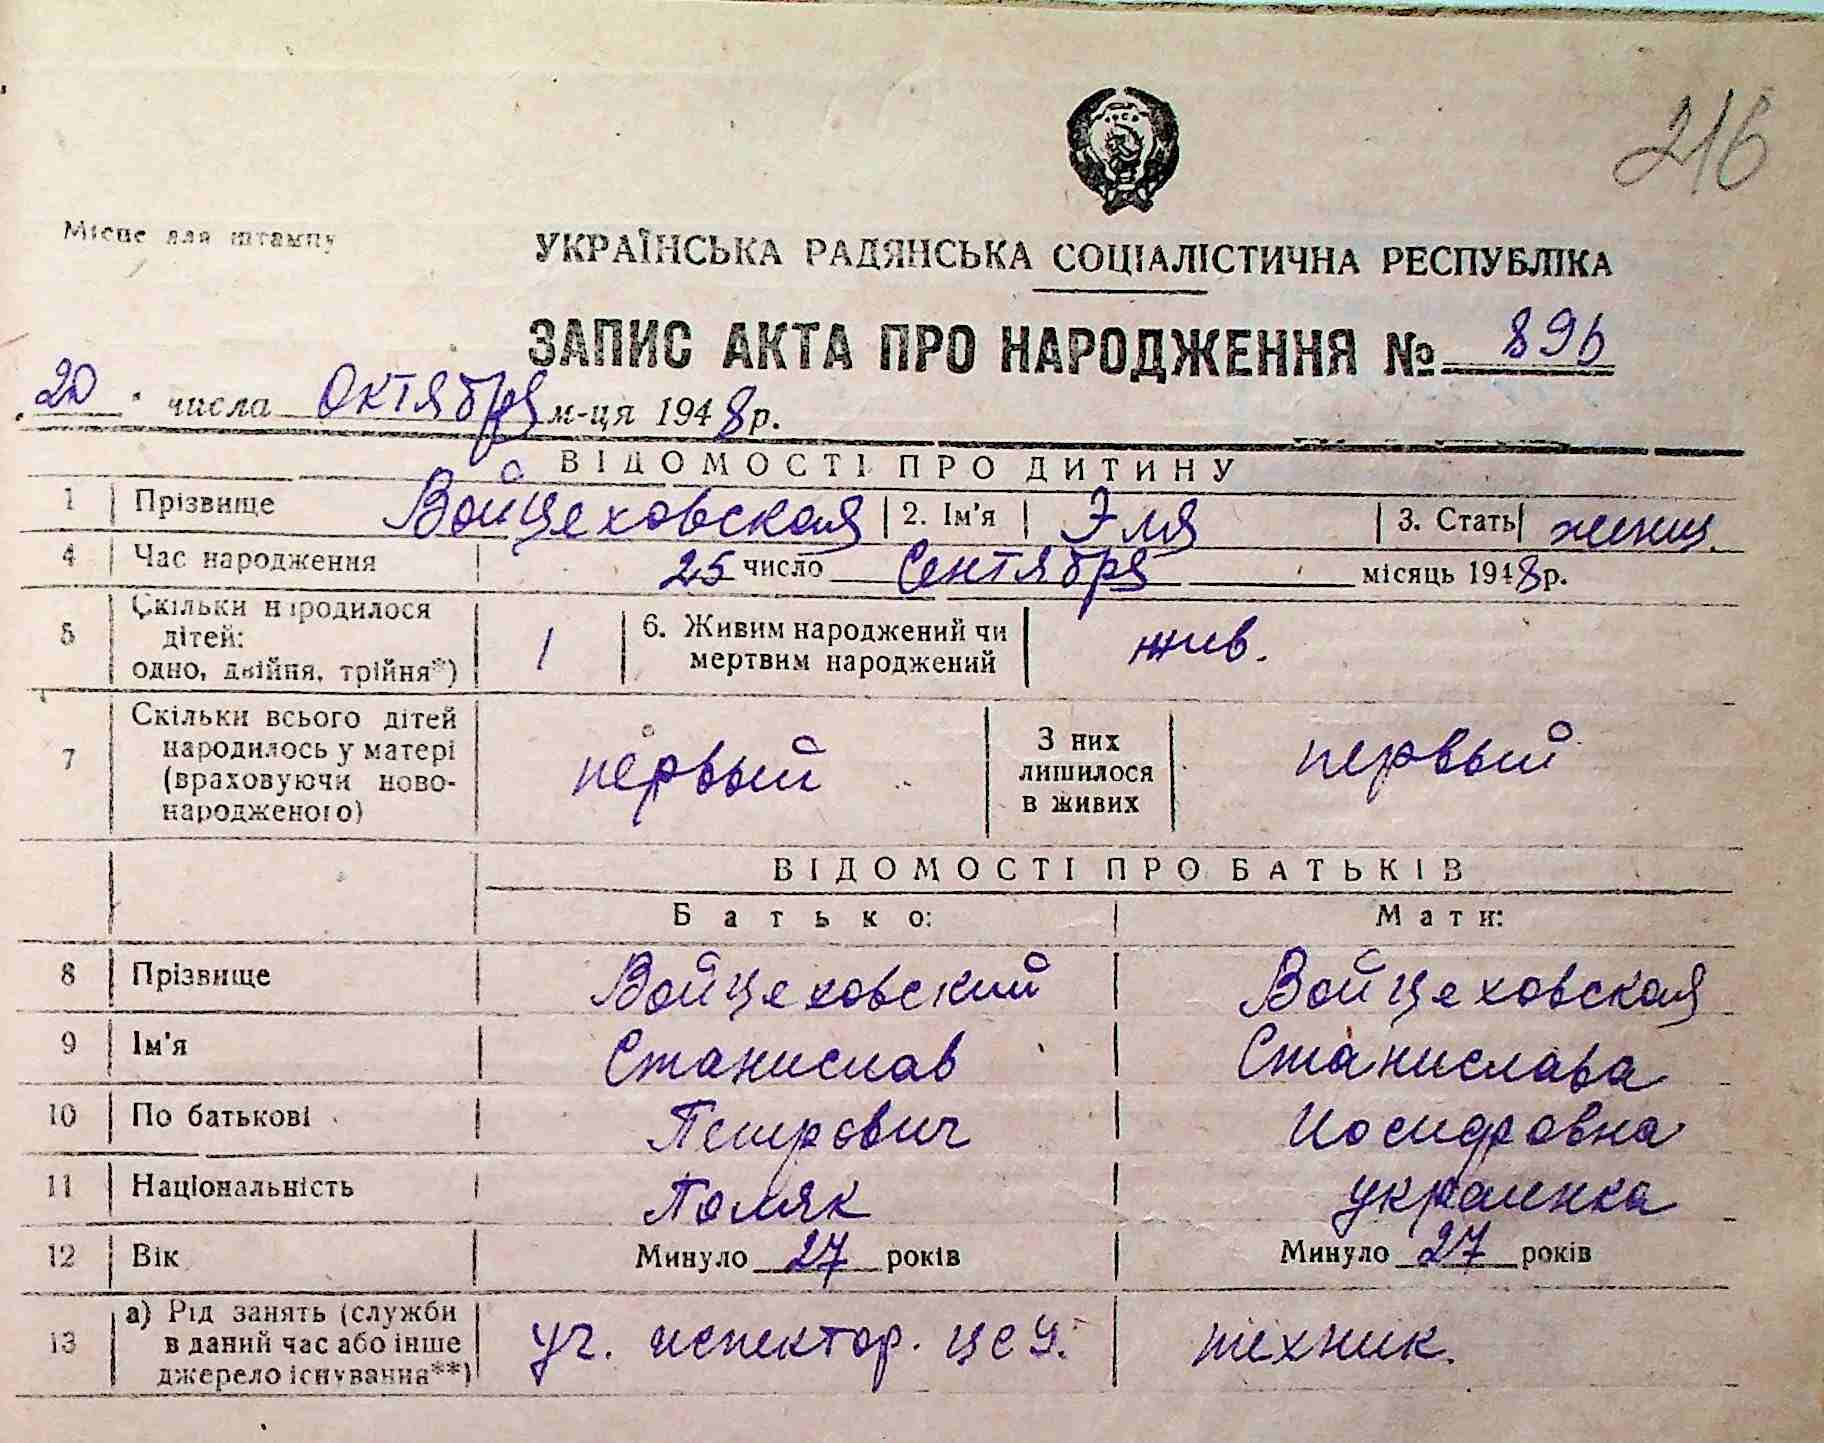 216
Місце для штампу
УКРАЇНСЬКА РАДЯНСЬКА СОЦІАЛІСТИЧНА РЕСПУБЛІКА
ЗАПИС АКТА ПРО НАРОДЖЕННЯ № 896
"20" числа октября м-ця 1948 р.
ВІДОМОСТІ ПРО ДИТИНУ
1 Прізвище Войцеховская 2. Ім'я Эля 3. Стать женщ.
4 Час народження 25 число Сентября місяць 1948 р.
5 Скільки народилося
дітей:
одно, двійня, трійня*) 1 6. Живим народжений чи
мертвим народжений жив.
7 Скільки всього дітей
народилось у матері
(враховуючи ново-
народженого) первый З них
лишилося
в живих первый
ВІДОМОСТІ ПРО БАТЬКІВ
Батько: Мати:
8 Прізвище Войцеховский Войцеховская
9 Ім'я Станислав Станислава
10 По батькові Петрович Иосифовна
11 Національність Поляк украинка
12 Вік Минуло 27 років Минуло 27 років
13 а) Рід занять (служби
в даний час або інше
джерело існування**) уч. испектор. ЦСУ. техник.